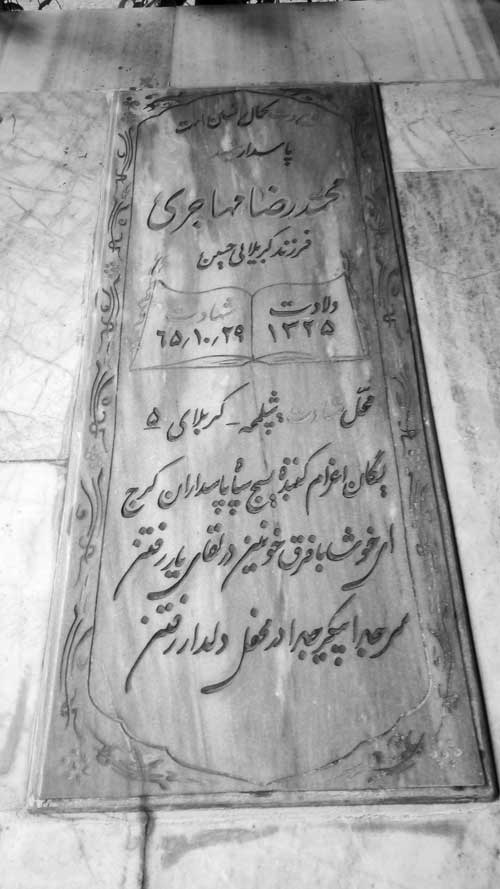 شهادت کمال انسان است
پاسدار شهید
محمدرضا مهاجری
فرزند کربلایی حسین
ولادت شهادت
۱۳۲۵ ۶۵٫۱۰٫۲۹
محل شهادت شلمچه - کربلای ۵
یگان اعزام کننده بسیج سپاه پاسداران کرج
ای خوشا با فرق خونین در لقای یار رفتن
سر جدا پیکر جدا در محفل دلدار رفتن